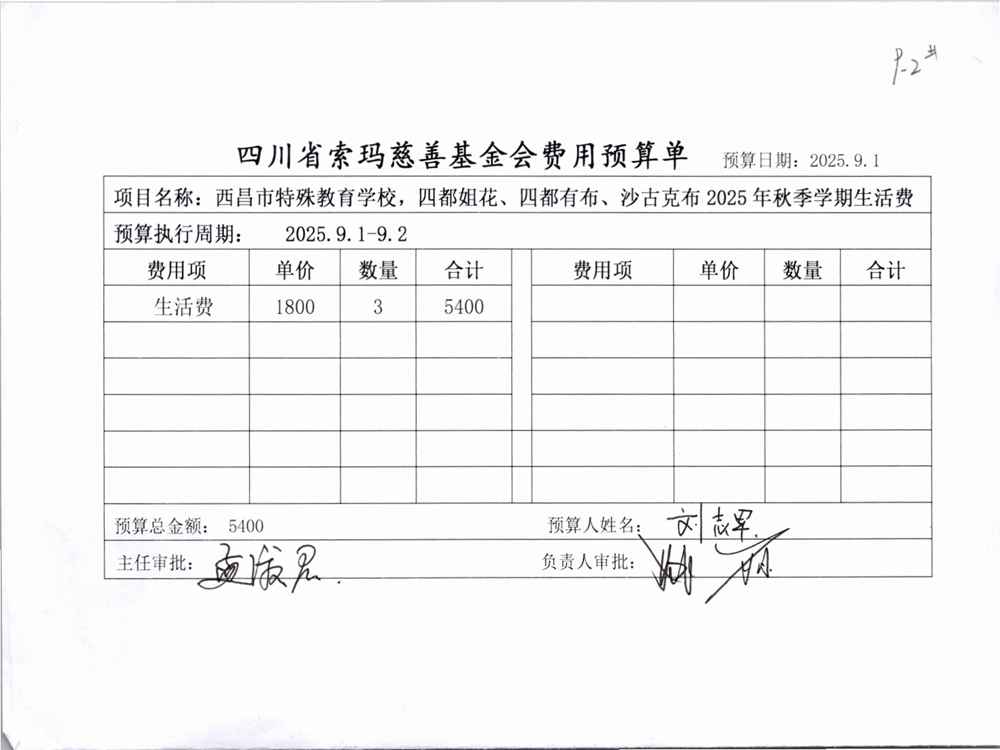 四川省索玛慈善基金会费用预算单 预算日期：2025.9.1
项目名称：西昌市特殊教育学校，四都姐花、四都有布、沙古克布 2025 年秋季学期生活费
预算执行周期： 2025.9.1-9.2
费用项 单价 数量 合计 费用项 单价 数量 合计
生活费 1800 3 5400
预算总金额： 5400 预算人姓名：刘志军
主任审批： 负责人审批：